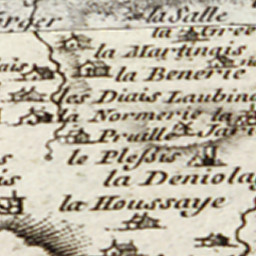 la Salle
la Martinais
la Benerie
les Diais Laubin
la Normerie la
Pruille
le Plessis
la Deniola
la Houssaye